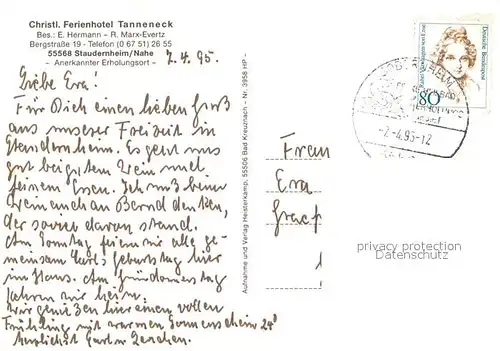 Christl. Ferienhotel Tanneneck
Bes.: E. Hermann – R. Marx-Evertz
Bergstraße 19 - Telefon (0 67 51) 26 55
55568 Staudernheim/Nahe
– Anerkannter Erholungsort –
2.4.95.
Liebe Eva!
Für Dich einen lieben Gruß
aus unserer Freizeit in
Staudernheim. Es geht uns
gut bei gutem Wein und
feinem Essen. Ich muß beim
Wein auch an Bernd denken,
der soviel davon stand.
Am Sonntag feiern wir alle ge-
meinsam Karls Geburtstag hier
im Haus. Am Gründonnerstag
fahren wir heim.
Wir genießen hier einen vollen
Frühling mit warmen Sonnenschein 24°
herzlichst
Aufnahme und Verlag Heisterkamp, 55506 Bad Kreuznach – Nr. 3958 HP -
Deutsche Bundespost
80
-2.-4.95-12
Frau
Eva
privacy protection
Datenschutz